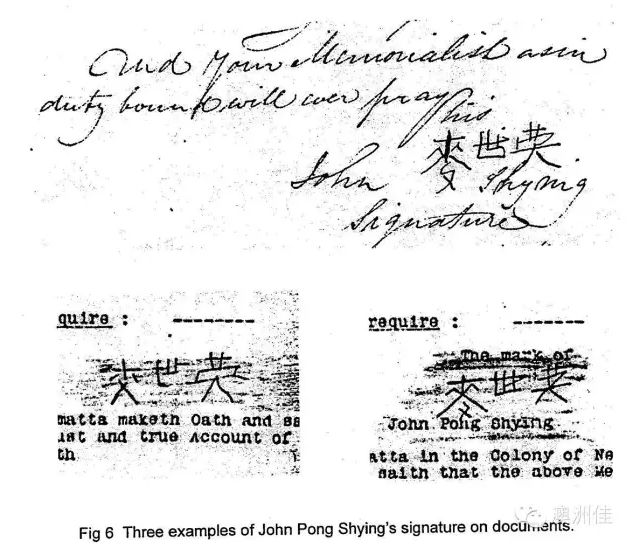 And your Memorialist as in
duty bound will ever pray
his
麥世英
John Shying
Signature
quire : --------
麥世英
matta maketh Oath and sa
ust and true Account of
th
require : -------
The mark of
麥世英
John Pong Shying
atta in the Colony of Ne
saith that the above Me
澳洲佳
Fig 6 Three examples of John Pong Shying's signature on documents.